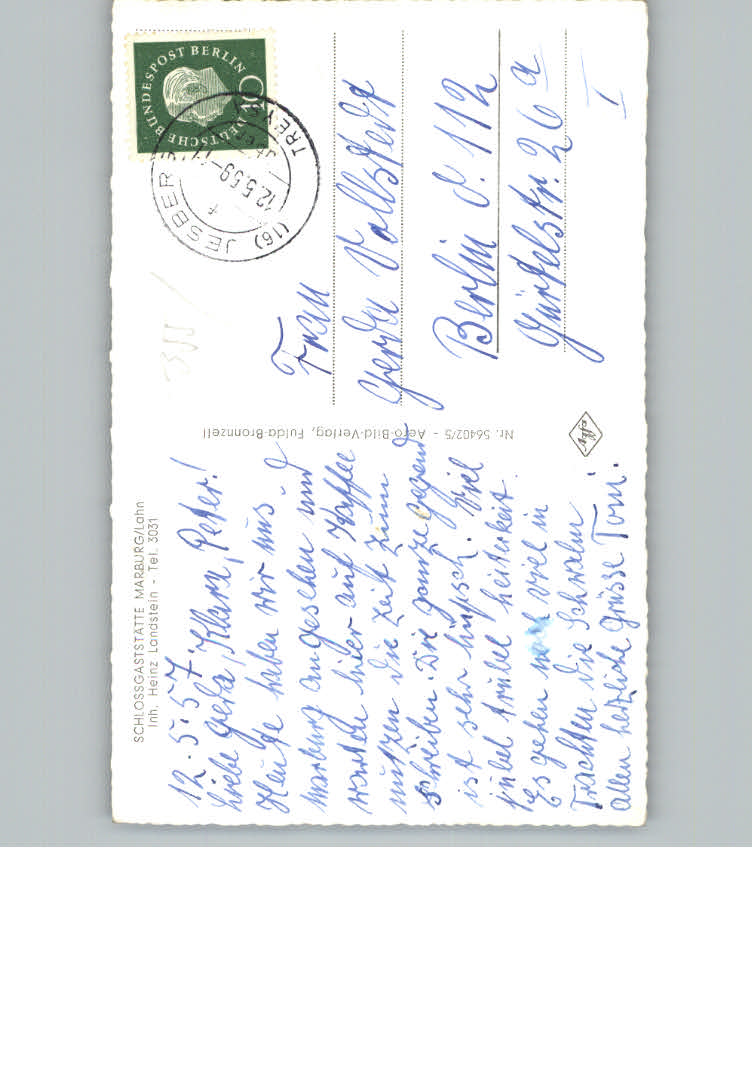 SCHLOSSGASTSTÄTTE MARBURG/Lahn
Inh. Heinz Landstein - Tel. 3031
12.5.57
Liebe Gerda, Klara, Peter!
Heute haben wir uns
Marburg angesehen und
warten hier auf Kaffee
nutzen die Zeit zum
schreiben. Die ganze Gegend
ist sehr hübsch. Viel
Jubel trubel heiterkeit.
Es gehen noch viel in
Trachten die Schwalm
allen herzliche Grüsse Toni.
Nr. 56402/5 - Aero-Bild-Verlag, Fulda-Bronnzell
DEUTSCHE BUNDESPOST BERLIN
10
(16) JESBERG
12.5.59
TREYSA
Frau
Gerda Vollstedt
Berlin O. 112
Gürtelstr. 26 a
I